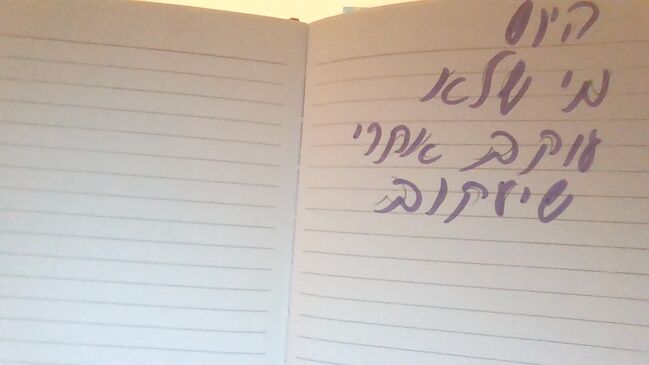 היום
מי שלא
עוקב אחרי
שיעקוב